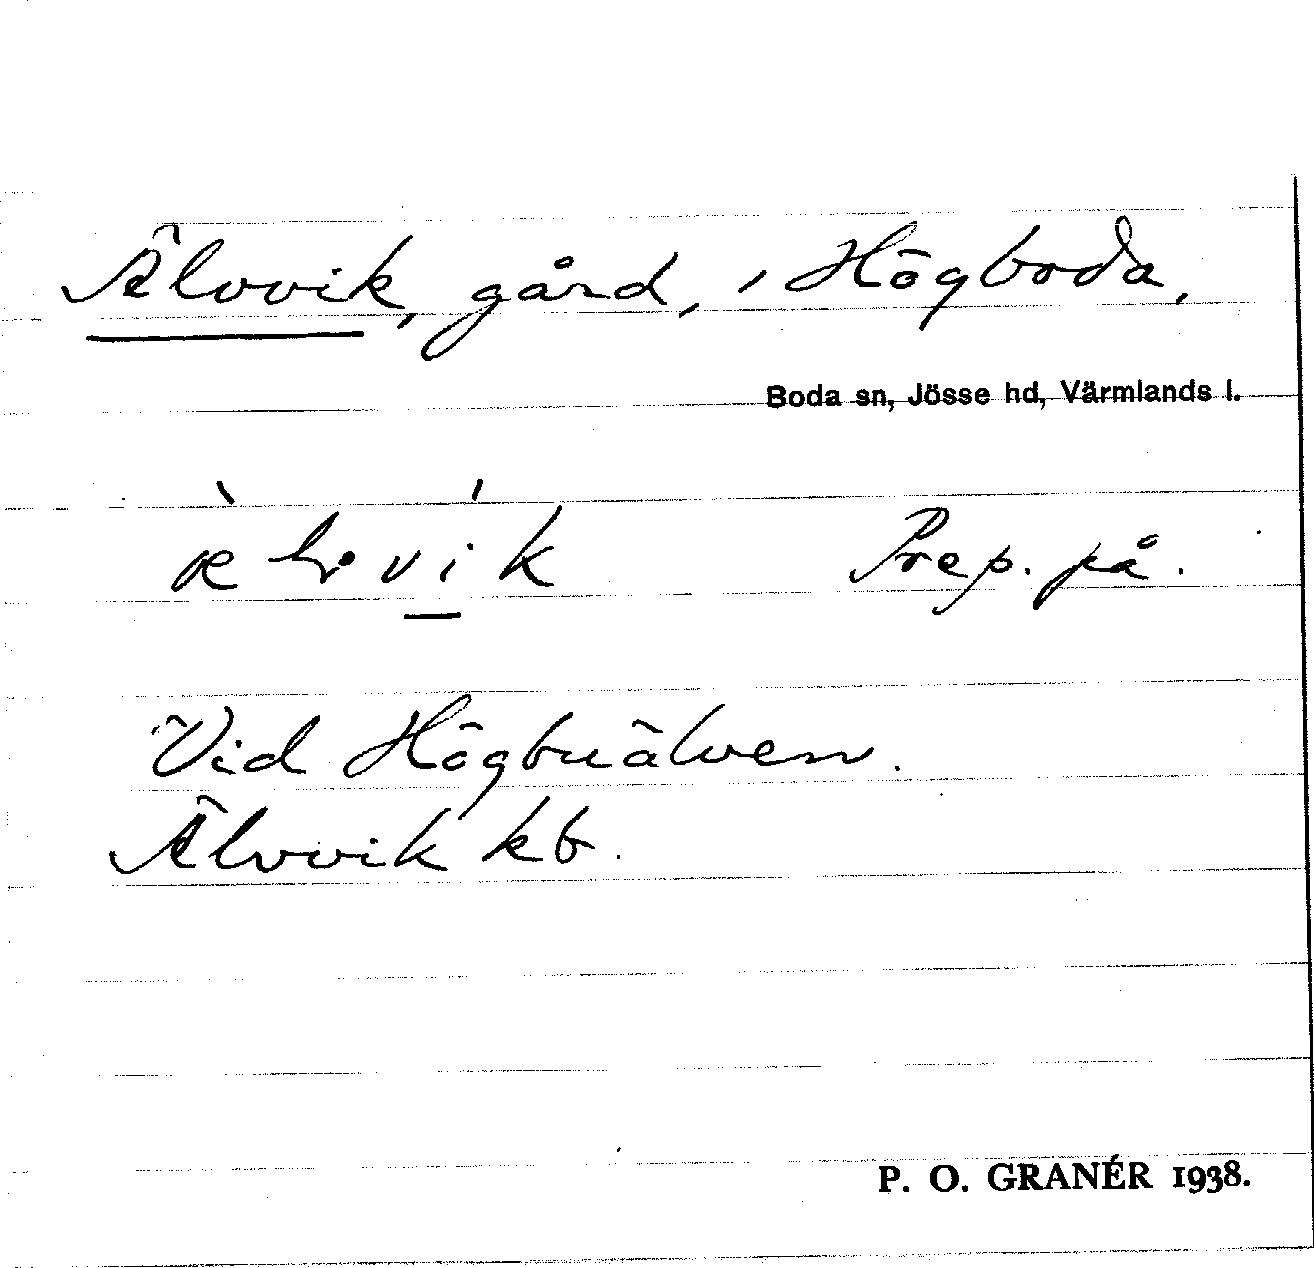 Älvvik, gård, i Högboda,
Boda sn, Jösse hd, Värmlands l.
Prep. på.
Vid Högbuälven.
Älvvik kb.
P. O. GRANÉR 1938.